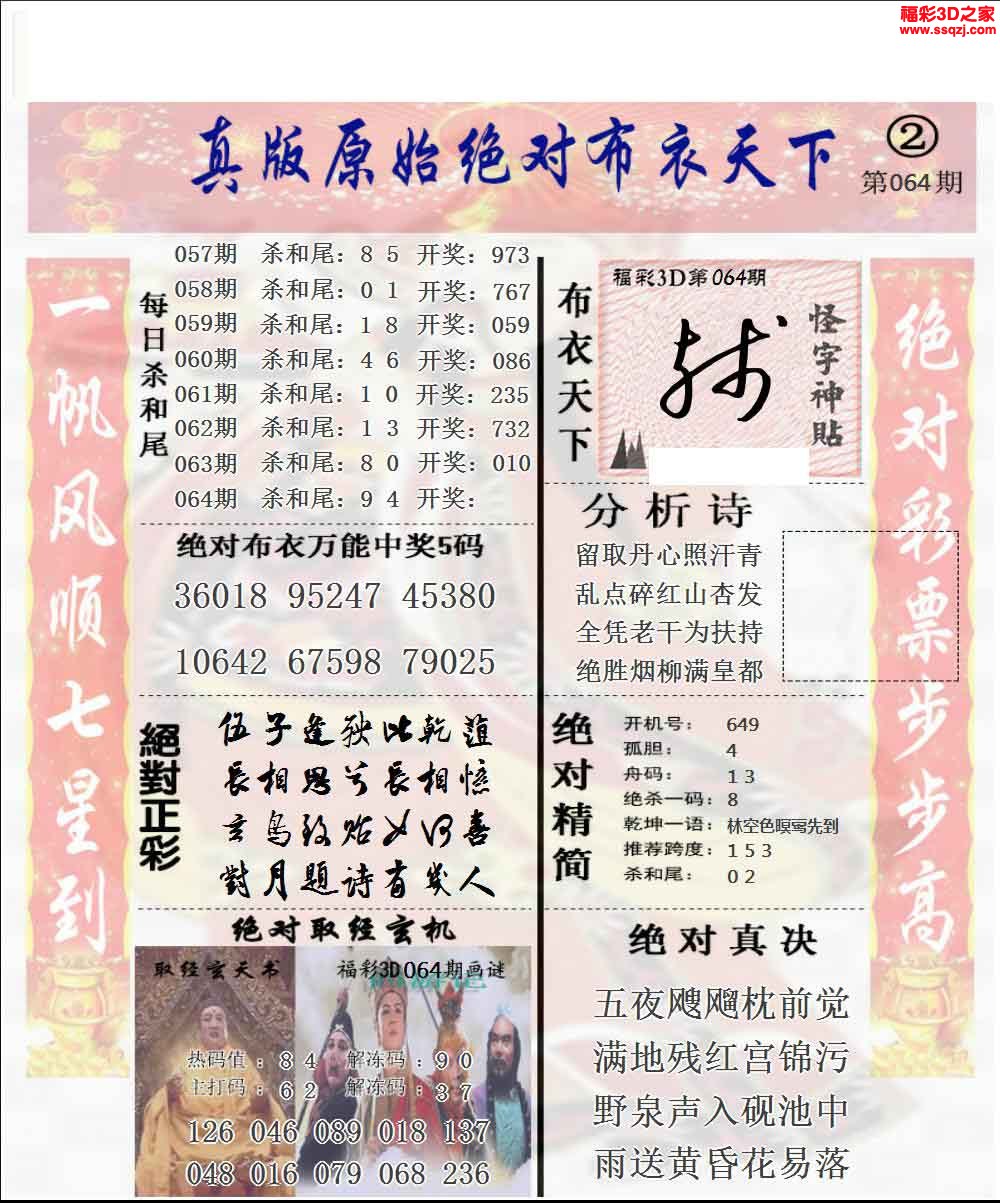 福彩3D之家
www.ssqzj.com
真版原始绝对布衣天下
②
第064期
一帆风顺七星到
每日杀和尾
057期 杀和尾：8 5 开奖：973
058期 杀和尾：0 1 开奖：767
059期 杀和尾：1 8 开奖：059
060期 杀和尾：4 6 开奖：086
061期 杀和尾：1 0 开奖：235
062期 杀和尾：1 3 开奖：732
063期 杀和尾：8 0 开奖：010
064期 杀和尾：9 4 开奖：
绝对布衣万能中奖5码
36018 95247 45380
10642 67598 79025
絕對正彩
長相思兮長相憶
對月題诗有幾人
绝对取经玄机
取经玄天书
福彩3D064期画谜
热码值：8 4 解冻码：9 0
主打码：6 2 解冻码：3 7
126 046 089 018 137
048 016 079 068 236
布衣天下
福彩3D第064期
怪字神貼
分析诗
留取丹心照汗青
乱点碎红山杏发
全凭老干为扶持
绝胜烟柳满皇都
绝对精简
开机号：649
孤胆：4
舟码：1 3
绝杀一码：8
乾坤一语：林空色暝莺先到
推荐跨度：1 5 3
杀和尾：0 2
绝对真决
五夜飕飗枕前觉
满地残红宫锦污
野泉声入砚池中
雨送黄昏花易落
绝对彩票步步高